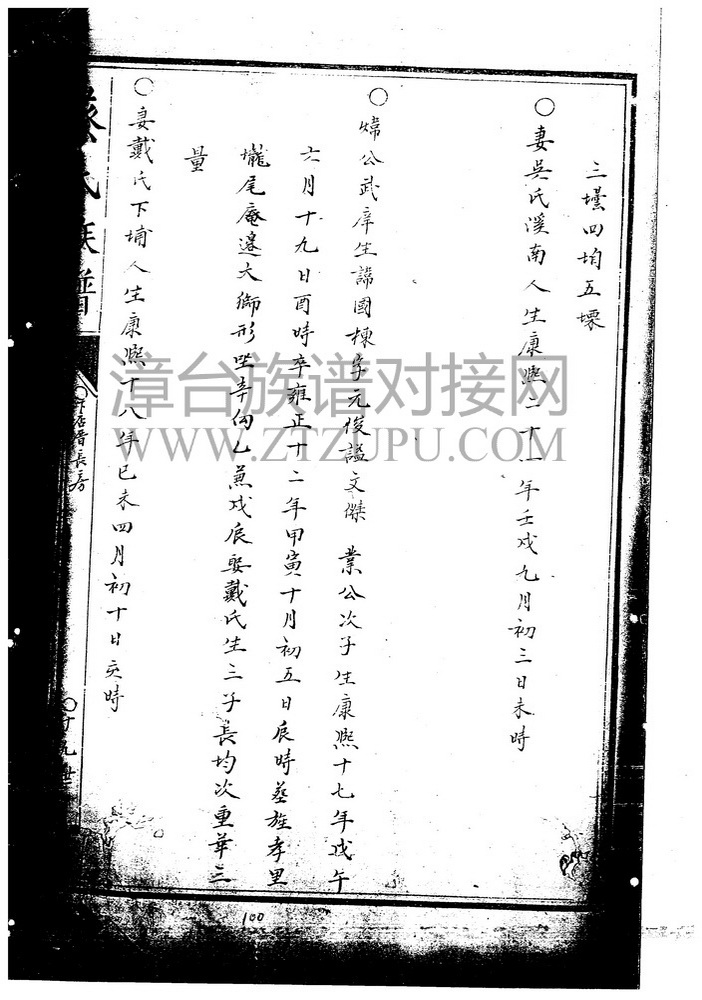 三壜四均五壈
○妻吳氏溪南人生康熙二十一年壬戌九月初三日未時
○煒公武庠生諱國棟字元俊謚文傑 業公次子生康熙十七年戊午
六月十九日酉時卒雍正十二年甲寅十月初五日辰時葬旌孝里
壠尾庵邊大獅形坐辛向乙兼戌辰娶戴氏生三子長均次重華三
量
○妻戴氏下埔人生康熙十八年己未四月初十日亥時
氏族譜
長房
漳台族谱对接网
WWW.ZTZUPU.COM
100